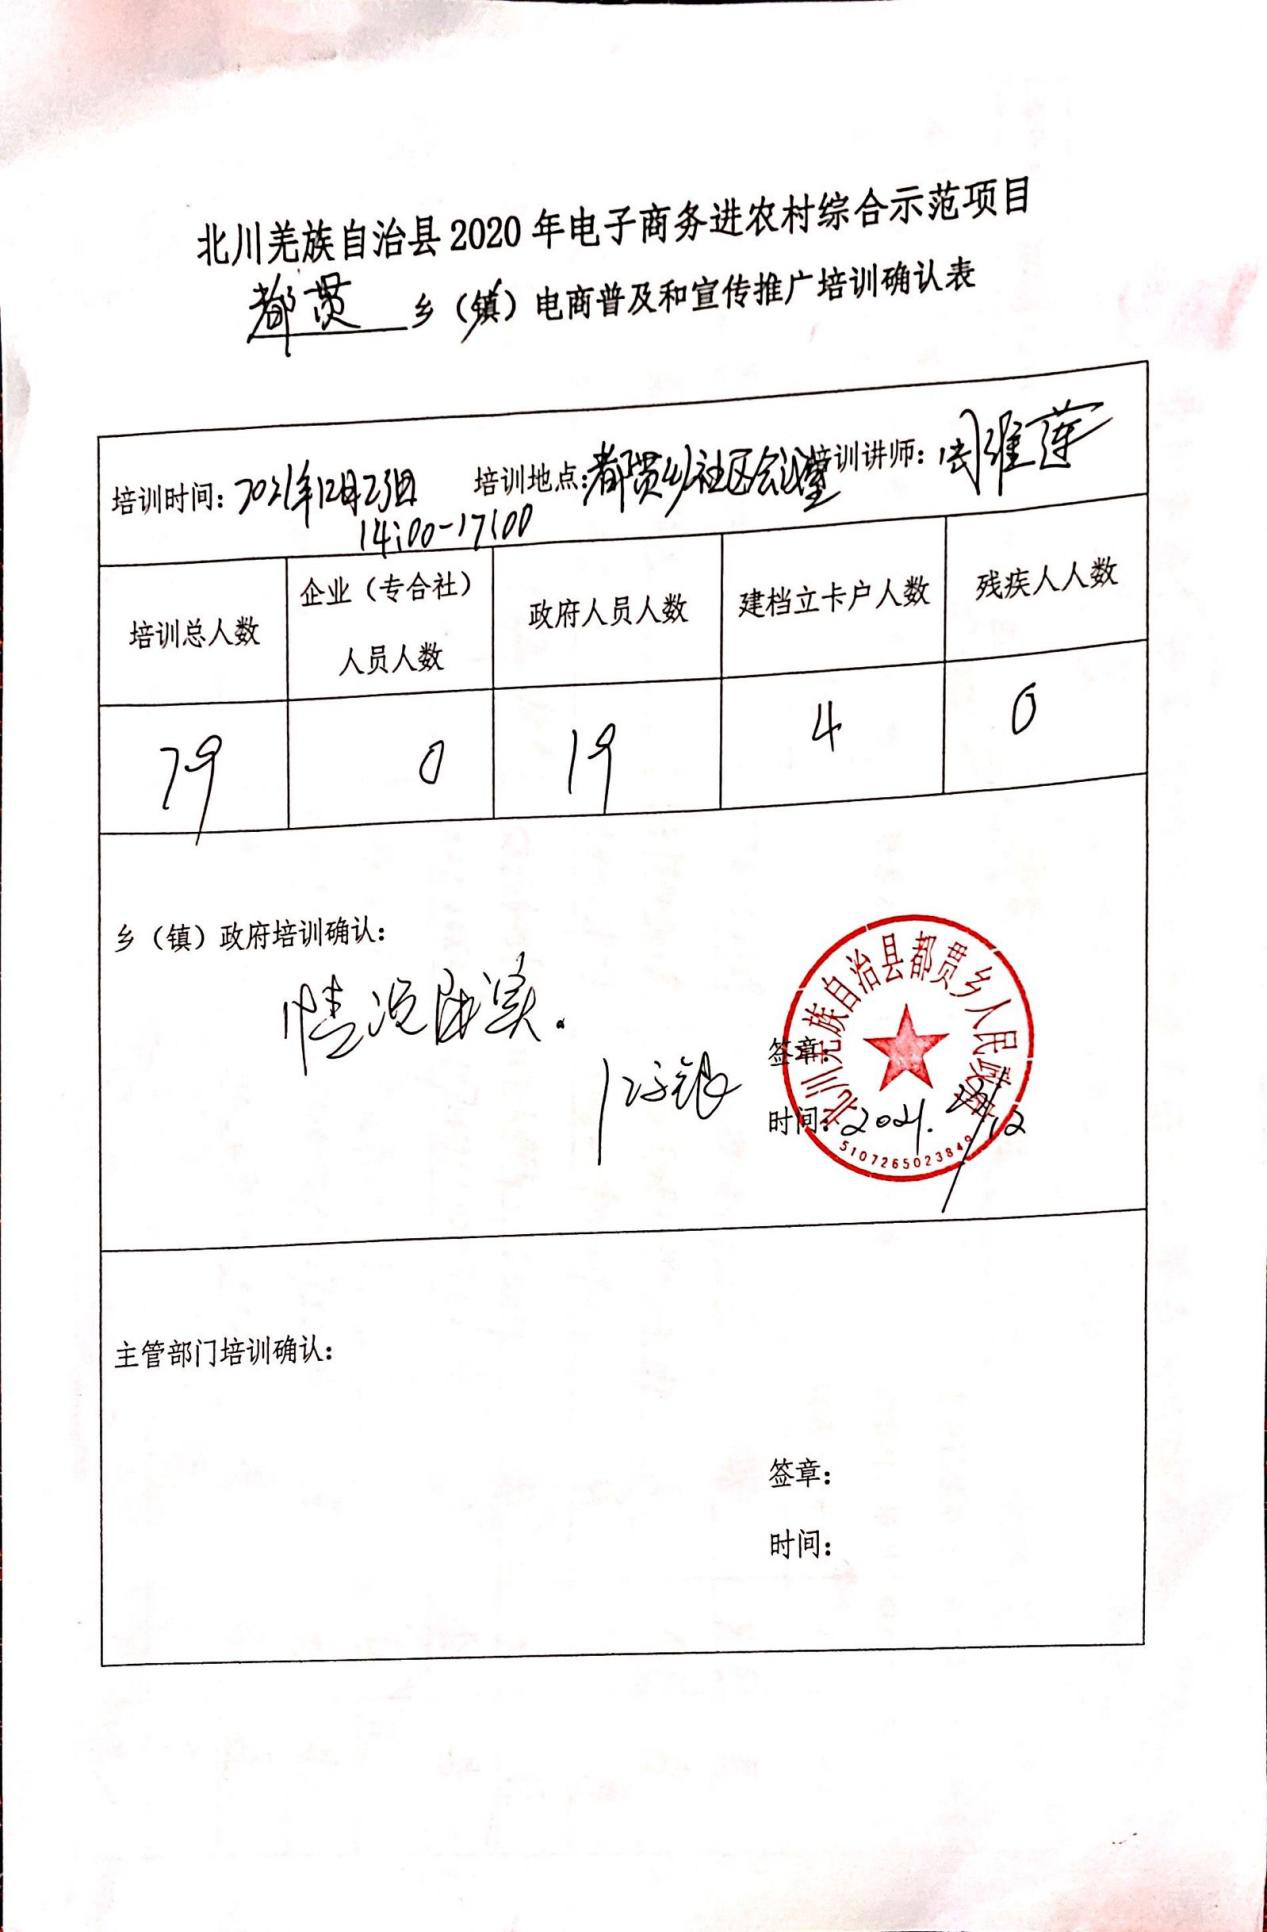 北川羌族自治县2020年电子商务进农村综合示范项目
都贯乡（镇）电商普及和宣传推广培训确认表
培训时间：2021年12月23日 培训地点：都贯乡社区会议室 培训讲师：周维莲
14:00-17:00
培训总人数 企业（专合社）人员人数 政府人员人数 建档立卡户人数 残疾人人数
79 0 19 4 0
乡（镇）政府培训确认：
情况属实。
签章：
时间：2021.
北川羌族自治县都贯乡人民政府
5107265023849
主管部门培训确认：
签章：
时间：